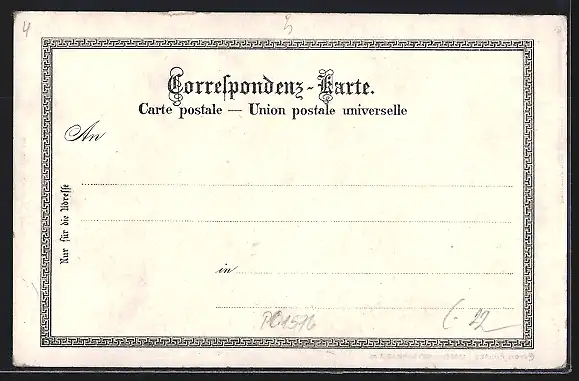 4
Correspondenz-Karte.
Carte postale — Union postale universelle
An
Nur für die Adresse
in